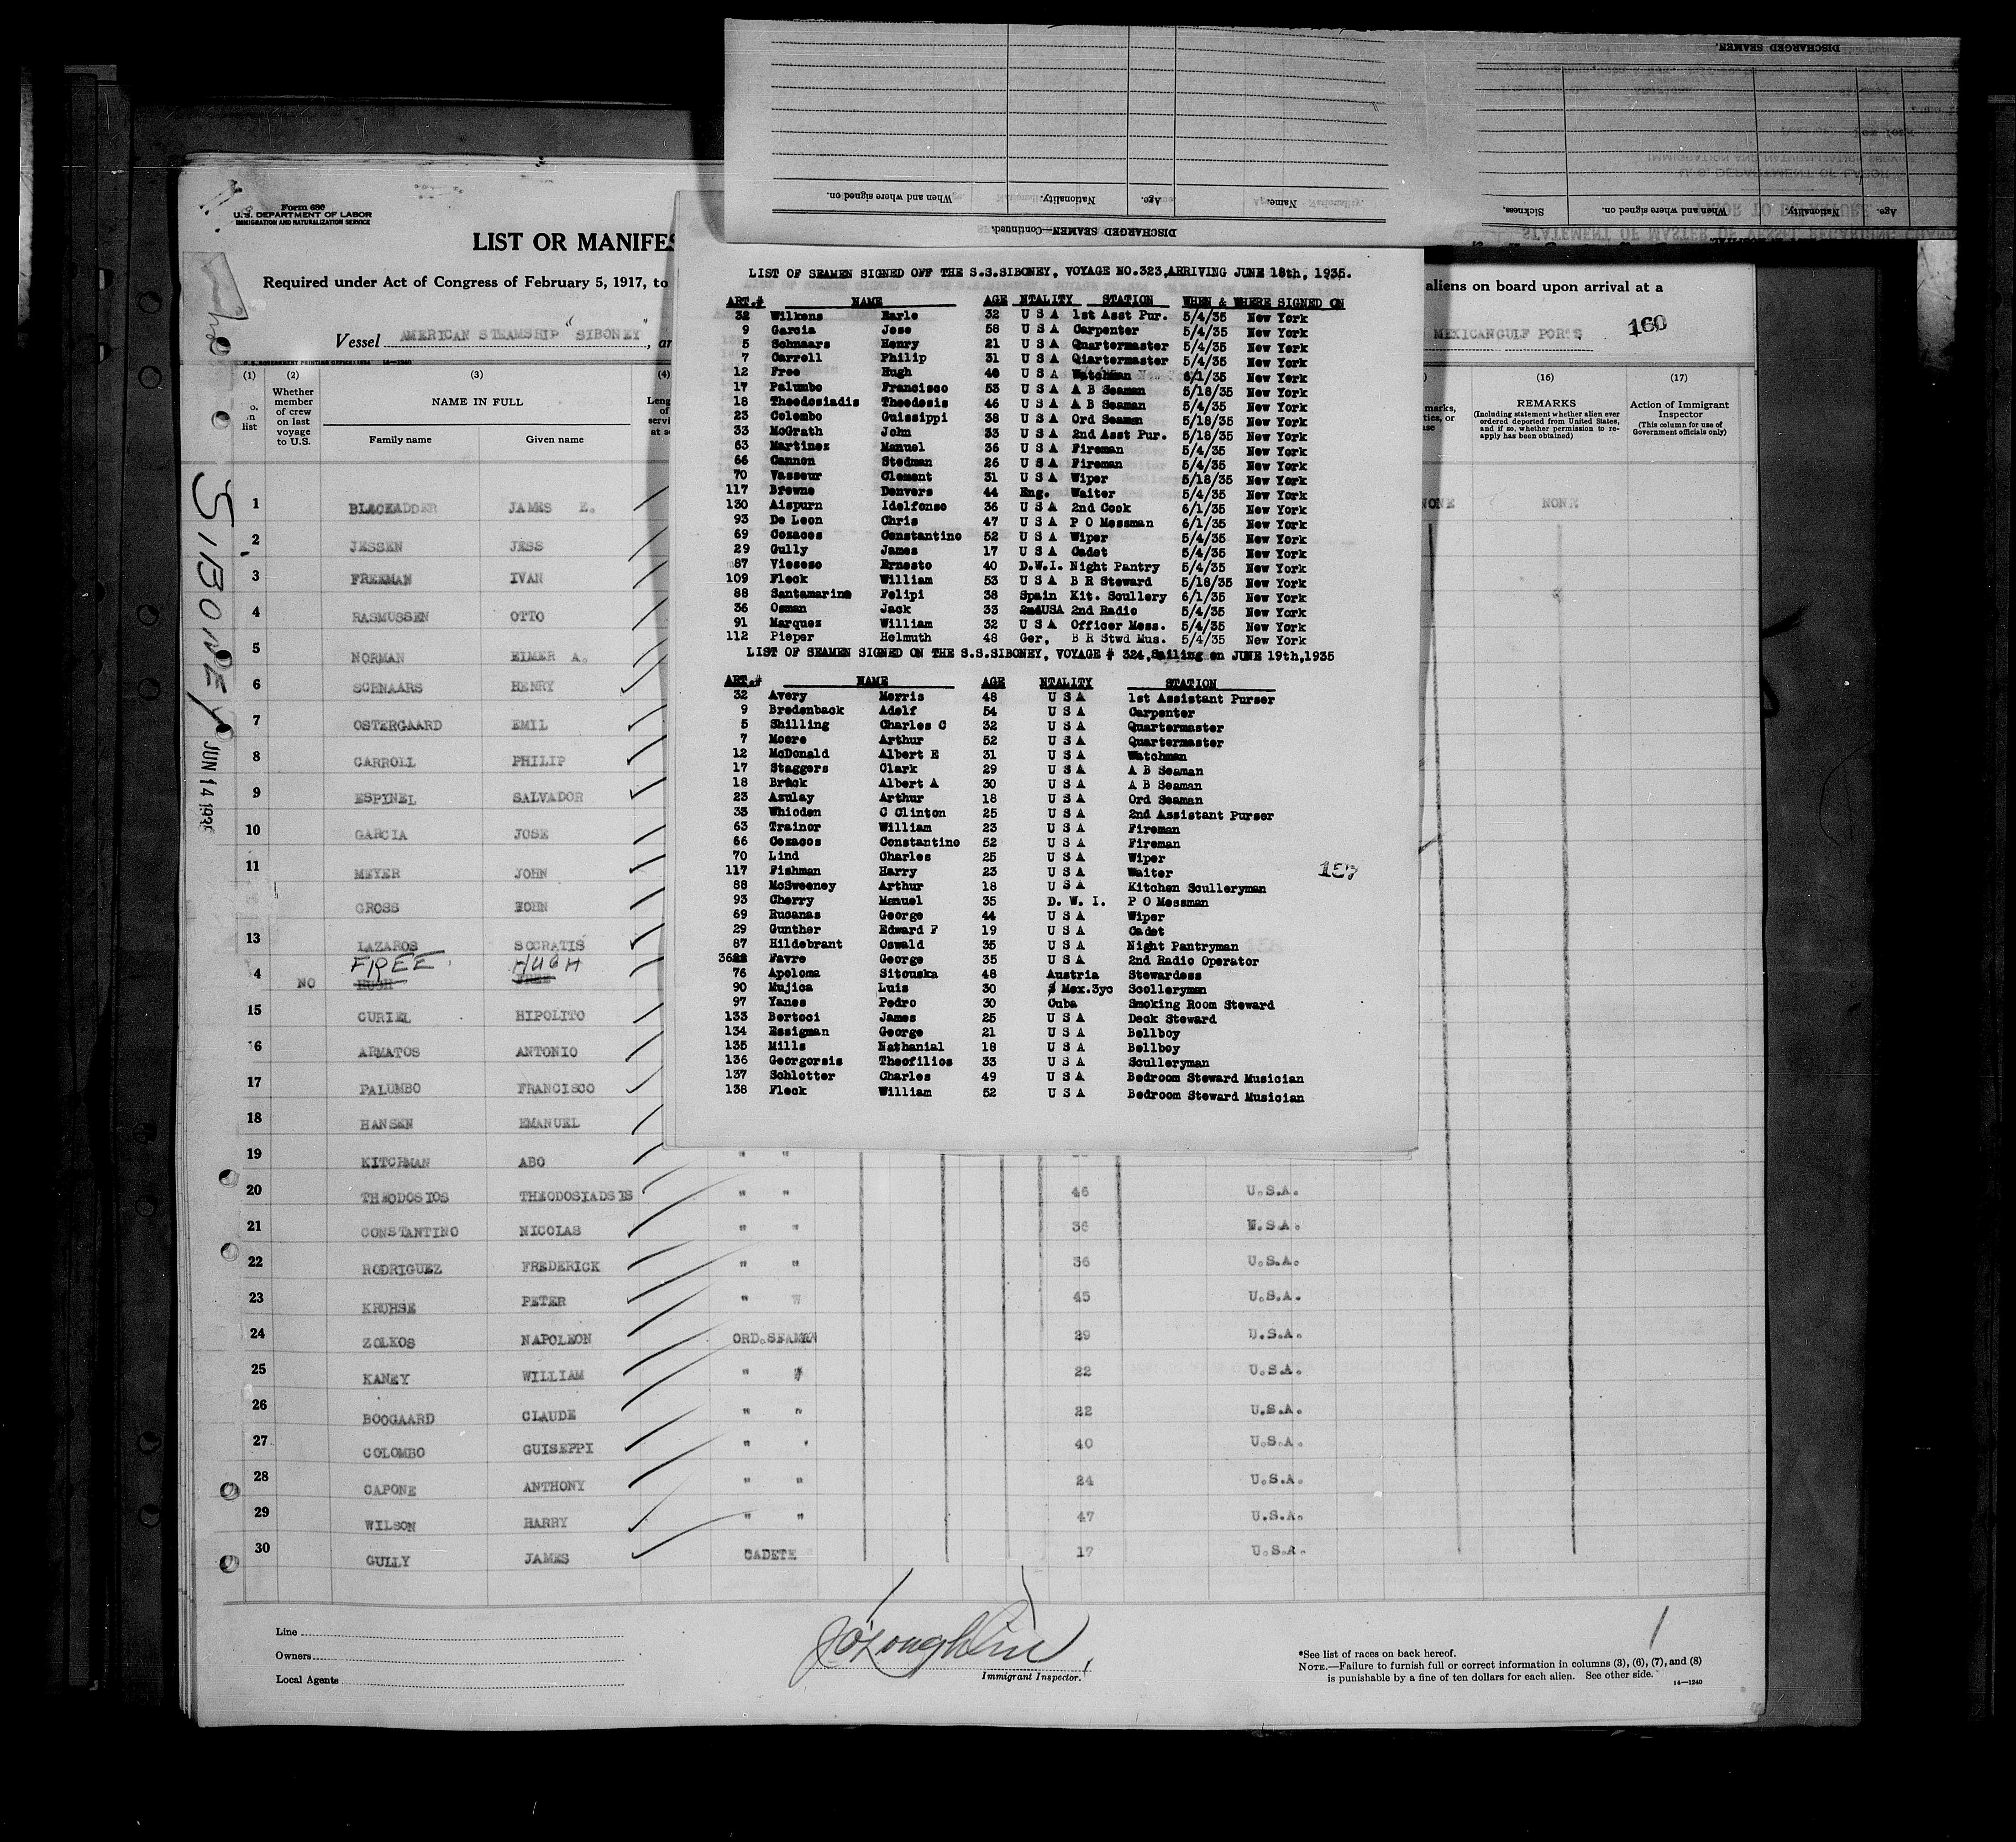 DISCHARGED SEAMEN.
Name.
Age.
Nationality.
When and where signed on.
Sickness,
DISCHARGED SEAMEN—Continued.
Age.
Nationality.
When and where signed on.
IMMIGRATION AND NATURALIZATION SERVICE
U.S. DEPARTMENT OF LABOR
PRIOR TO DEPARTURE
STATEMENT OF MASTER OF VESSEL REGARDING
Form 680
U.S. DEPARTMENT OF LABOR
IMMIGRATION AND NATURALIZATION SERVICE
LIST OR MANIFES
Required under Act of Congress of February 5, 1917, to
aliens on board upon arrival at a
Vessel AMERICAN STEAMSHIP "SIBONEY", ar
MEXICANGULF PORTS
160
U.S. GOVERNMENT PRINTING OFFICE: 1934 14—1240
(1) (2) (3) (4) (16) (17)
list
Whether member of crew on last voyage to U.S.
NAME IN FULL
Family name Given name
REMARKS
(Including statement whether alien ever ordered deported from United States, and if so, whether permission to reapply has been obtained)
Action of Immigrant Inspector
(This column for use of Government officials only)
SIBONEY
JUN 14 1935
LIST OF SEAMEN SIGNED OFF THE S.S.SIBONEY, VOYAGE NO.323,ARRIVING JUNE 18th, 1935.
ART.# NAME AGE NTALITY STATION WHEN & WHERE SIGNED ON
32 Wilkens Earle 32 U S A 1st Asst Pur. 5/4/35 New York
9 Garcia Jose 58 U S A Carpenter 5/4/35 New York
5 Schnaars Henry 21 U S A Quartermaster 5/4/35 New York
7 Carrell Philip 31 U S A Qiartermaster 5/4/35 New York
12 Free Hugh 40 U S A Watchman 6/1/35 New York
17 Palumbo Francisco 53 U S A A B Seaman 5/18/35 New York
18 Theodosiadis Theodosis 46 U S A A B Seaman 5/4/35 New York
23 Colombo Guissippi 38 U S A Ord Seaman 5/18/35 New York
33 McGrath John 33 U S A 2nd Asst Pur. 5/18/35 New York
63 Martinez Manuel 36 U S A Fireman 5/4/35 New York
66 Cannon Stedman 26 U S A Fireman 5/4/35 New York
70 Vasseur Clement 31 U S A Wiper 5/18/35 New York
117 Browne Denvers 44 Eng. Waiter 5/4/35 New York
130 Aispurn Idelfonso 36 U S A 2nd Cook 6/1/35 New York
93 De Leon Chris 47 U S A P O Messman 6/1/35 New York
69 Cozacos Constantino 52 U S A Wiper 5/4/35 New York
29 Gully James 17 U S A Cadet 5/4/35 New York
87 Viesoso Ernesto 40 D.W.I. Night Pantry 5/4/35 New York
109 Fleck William 53 U S A B R Steward 5/18/35 New York
88 Santamarina Felipi 38 Spain Kit. Scullery 6/1/35 New York
36 Osman Jack 33 USA 2nd Radio 5/4/35 New York
91 Marquez William 32 U S A Officer Mess. 5/4/35 New York
112 Pieper Helmuth 48 Ger, B R Stwd Mus. 5/4/35 New York
LIST OF SEAMEN SIGNED ON THE S.S.SIBONEY, VOYAGE # 324,Sailing on JUNE 19th,1935
ART.# NAME AGE NTALITY STATION
32 Avery Morris 48 U S A 1st Assistant Purser
9 Bredenback Adolf 54 U S A Carpenter
5 Shilling Charles C 32 U S A Quartermaster
7 Moore Arthur 52 U S A Quartermaster
12 McDonald Albert E 31 U S A Watchman
17 Staggers Clark 29 U S A A B Seaman
18 Brack Albert A 30 U S A A B Seaman
23 Azulay Arthur 18 U S A Ord Seaman
33 Whioden C Clinton 25 U S A 2nd Assistant Purser
63 Trainor William 23 U S A Fireman
66 Cozacos Constantino 52 U S A Fireman
70 Lind Charles 25 U S A Wiper
117 Fishman Harry 23 U S A Waiter
157
88 McSweeney Arthur 18 U S A Kitchen Sculleryman
93 Cherry Manuel 35 D. W. I. P O Messman
69 Rucanas George 44 U S A Wiper
29 Gunther Edward F 19 U S A Cadet
87 Hildebrant Oswald 35 U S A Night Pantryman
36 Favre George 35 U S A 2nd Radio Operator
76 Apoloma Sitouska 48 Austria Stewardess
90 Mujica Luis 30 Mex.3yc Scolleryman
97 Yanes Pedro 30 Cuba Smoking Room Steward
133 Bertoci James 25 U S A Deck Steward
134 Essigman George 21 U S A Bellboy
135 Mills Nathanial 18 U S A Bellboy
136 Georgorsis Theofilios 33 U S A Sculleryman
137 Schlotter Charles 49 U S A Bedroom Steward Musician
138 Fleck William 52 U S A Bedroom Steward Musician
1 BLACKADDER JAMES E. NONE NONE
2 JESSEN JESS
3 FREEMAN IVAN
4 RASMUSSEN OTTO
5 NORMAN EIMER A.
6 SCHNAARS HENRY
7 OSTERGAARD EMIL
8 CARROLL PHILIP
9 ESPINEL SALVADOR
10 GARCIA JOSE
11 MEYER JOHN
GROSS EOHN
13 LAZAROS SOCRATIS
4 NO FREE HUGH
HUGH FREE
15 CURIEL HIPOLITO
16 ARMATOS ANTONIO
17 PALUMBO FRANCISCO
18 HANSEN EMANUEL
19 KITCHMAN ABO " "
20 THEODOSIOS THEODOSIADSIS " " 46 U.S.A.
21 CONSTANTINO NICOLAS " " 36 U.S.A.
22 RODRIGUEZ FREDERICK " " 36 U.S.A.
23 KRUHSE PETER " W 45 U.S.A.
24 ZOLKOS NAPOLEON ORD.SEAMAN 29 U.S.A.
25 KANEY WILLIAM " " 22 U.S.A.
26 BOOGAARD CLAUDE " " 22 U.S.A.
27 COLOMBO GUISEPPI " ' 40 U.S.A.
28 CAPONE ANTHONY " " 24 U.S.A.
29 WILSON HARRY " " 47 U.S.A.
30 GULLY JAMES CADETE 17 U.S.A.
Line
Owners
Local Agents
J O'Loughlin
Immigrant Inspector.
*See list of races on back hereof.
NOTE.—Failure to furnish full or correct information in columns (3), (6), (7), and (8)
is punishable by a fine of ten dollars for each alien. See other side.
14—1240